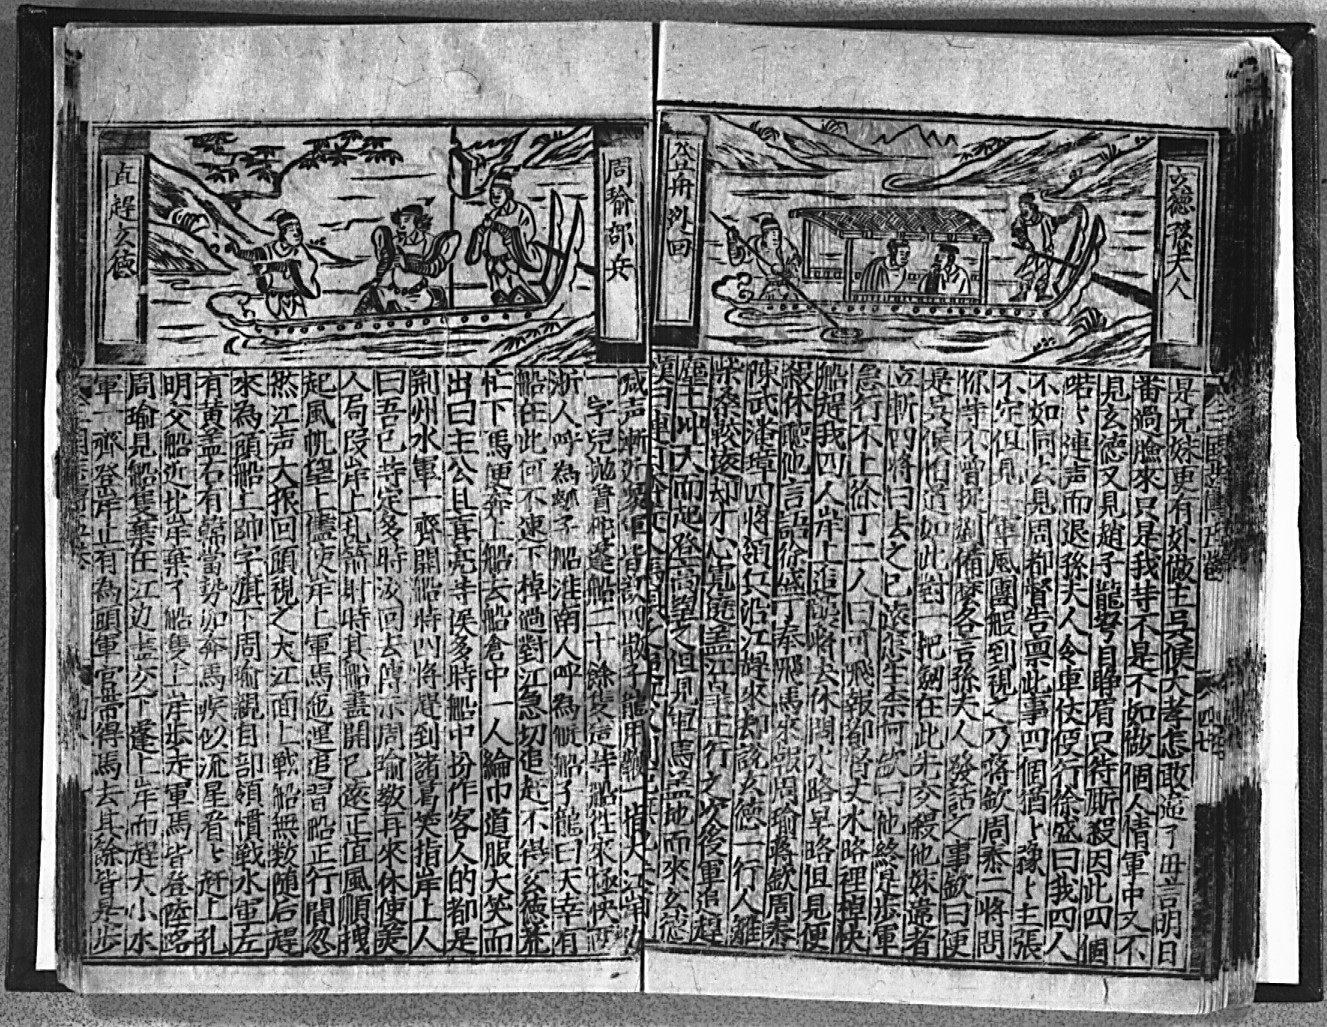 玄德孫夫人
登舟沿回
是兄妹更有外做主吳侯大孝怎敢逆了母言明日
番過臉來只是我等不是不如做個人情軍中又不
見玄德又見趙子龍弩目睜眉只待厮殺因此四個
喏卜連声而退孫夫人令車仗便行徐盛曰我四人
不如同去見周都督告稟此事四個猶卜豫卜主張
不定但見一軍風團般到視之乃蒋欽周泰二將問
你等不曾捉劉備麼各言孫夫人發話之事欽曰便
是吳侯怕道如此對一把劍在此先交殺他妹違者
立斬四將曰去之已遠怎生柰何欽曰他終是步軍
急行不上徐丁二人曰可飛報都督丈水路裡掉快
船趕我四人岸上追 將去休問水路旱路但見便
殺休聽他言語徐盛丁奉飛馬來報周瑜蒋欽周泰
陳武潘璋四將領兵沿江趕來却說玄德一行人離
柴桑較遠却才心寬 盖江岸正行之次後軍追趕
塵土冲天而起登高望之但見軍馬盖地而來玄德
周瑜部兵
直趕玄德
喊声漸近
一字兒抛着 蓬船二十餘隻這等船往來極快
浙人呼為 子船淮南人呼為 船子龍曰天幸有
船在此何不速下棹過對江急切追赶不得玄德等
忙下馬便奔上船去船倉中一人綸巾道服大笑而
出曰主公且喜亮等侯多時船中扮作客人的都是
荆州水軍一齊開船時四將趕到諸葛笑指岸上人
曰吾已等定多時汝回去傳示周瑜教再來休使美
人局段岸上乱箭射時其船盡開已遠正值風順拽
起風帆望上儘使岸上軍馬迆逞追習船正行間忽
然江声大振回頭視之大江面上戦船無数随后趕
來為頭船上帥字旗下周瑜親自部領慣戦水軍左
有黃盖右有韓當勢如奔馬疾似流星看卜赶上孔
明交船近北岸棄了船隻上岸步走軍馬皆登陸路
周瑜見船隻棄在江边盡交下蓬上岸而趕大小水
軍一齊登岸止有為頭軍官帶得馬去其餘皆是步